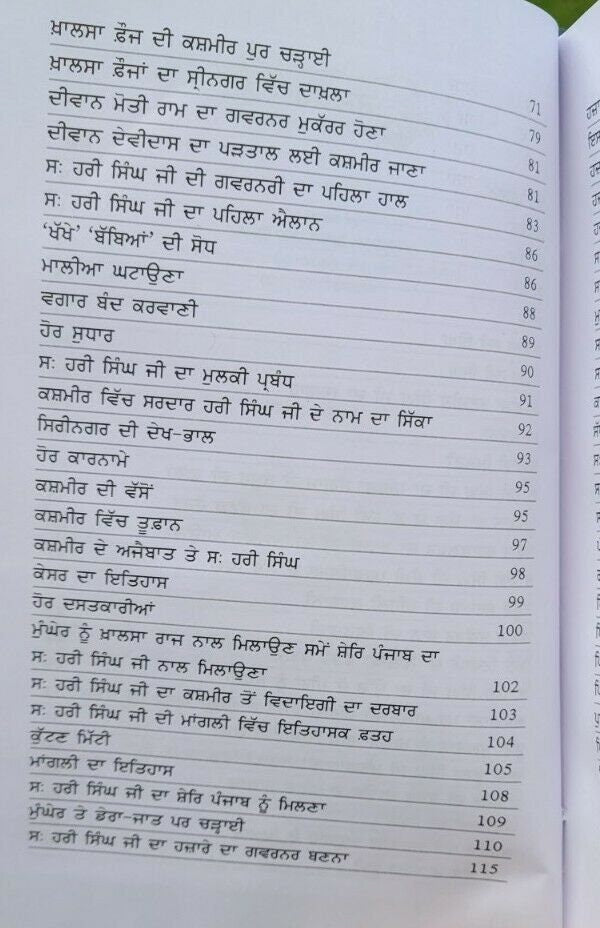 ਖ਼ਾਲਸਾ ਫ਼ੌਜ ਦੀ ਕਸ਼ਮੀਰ ਪੁਰ ਚੜ੍ਹਾਈ 71
ਖ਼ਾਲਸਾ ਫ਼ੌਜਾਂ ਦਾ ਸ੍ਰੀਨਗਰ ਵਿੱਚ ਦਾਖ਼ਲਾ 79
ਦੀਵਾਨ ਮੋਤੀ ਰਾਮ ਦਾ ਗਵਰਨਰ ਮੁਕੱਰਰ ਹੋਣਾ 81
ਦੀਵਾਨ ਦੇਵੀਦਾਸ ਦਾ ਪੜਤਾਲ ਲਈ ਕਸ਼ਮੀਰ ਜਾਣਾ 81
ਸਃ ਹਰੀ ਸਿੰਘ ਜੀ ਦੀ ਗਵਰਨਰੀ ਦਾ ਪਹਿਲਾ ਹਾਲ 83
ਸਃ ਹਰੀ ਸਿੰਘ ਜੀ ਦਾ ਪਹਿਲਾ ਐਲਾਨ 86
'ਖੱਖੇ' 'ਬੱਬਿਆਂ' ਦੀ ਸੋਧ 86
ਮਾਲੀਆ ਘਟਾਉਣਾ 88
ਵਗਾਰ ਬੰਦ ਕਰਵਾਣੀ 89
ਹੋਰ ਸੁਧਾਰ 90
ਸਃ ਹਰੀ ਸਿੰਘ ਜੀ ਦਾ ਮੁਲਕੀ ਪ੍ਰਬੰਧ 91
ਕਸ਼ਮੀਰ ਵਿੱਚ ਸਰਦਾਰ ਹਰੀ ਸਿੰਘ ਜੀ ਦੇ ਨਾਮ ਦਾ ਸਿੱਕਾ 92
ਸਿਰੀਨਗਰ ਦੀ ਦੇਖ-ਭਾਲ 93
ਹੋਰ ਕਾਰਨਾਮੇ 95
ਕਸ਼ਮੀਰ ਦੀ ਵੱਸੋਂ 95
ਕਸ਼ਮੀਰ ਵਿੱਚ ਤੂਫ਼ਾਨ 97
ਕਸ਼ਮੀਰ ਦੇ ਅਜੈਬਾਤ ਤੇ ਸਃ ਹਰੀ ਸਿੰਘ 98
ਕੇਸਰ ਦਾ ਇਤਿਹਾਸ 99
ਹੋਰ ਦਸਤਕਾਰੀਆਂ 100
ਮੁੰਘੇਰ ਨੂੰ ਖ਼ਾਲਸਾ ਰਾਜ ਨਾਲ ਮਿਲਾਉਣ ਸਮੇਂ ਸ਼ੇਰਿ ਪੰਜਾਬ ਦਾ
ਸਃ ਹਰੀ ਸਿੰਘ ਜੀ ਨਾਲ ਮਿਲਾਉਣਾ 102
ਸਃ ਹਰੀ ਸਿੰਘ ਜੀ ਦਾ ਕਸ਼ਮੀਰ ਤੋਂ ਵਿਦਾਇਗੀ ਦਾ ਦਰਬਾਰ 103
ਸਃ ਹਰੀ ਸਿੰਘ ਜੀ ਦੀ ਮਾਂਗਲੀ ਵਿੱਚ ਇਤਿਹਾਸਕ ਫ਼ਤਹ 104
ਕੁੱਟਣ ਮਿੱਟੀ 105
ਮਾਂਗਲੀ ਦਾ ਇਤਿਹਾਸ 108
ਸਃ ਹਰੀ ਸਿੰਘ ਜੀ ਦਾ ਸ਼ੇਰਿ ਪੰਜਾਬ ਨੂੰ ਮਿਲਣਾ 109
ਮੁੰਘੇਰ ਤੇ ਡੇਰਾ-ਜਾਤ ਪਰ ਚੜ੍ਹਾਈ 110
ਸਃ ਹਰੀ ਸਿੰਘ ਜੀ ਦਾ ਹਜ਼ਾਰੇ ਦਾ ਗਵਰਨਰ ਬਣਨਾ 115